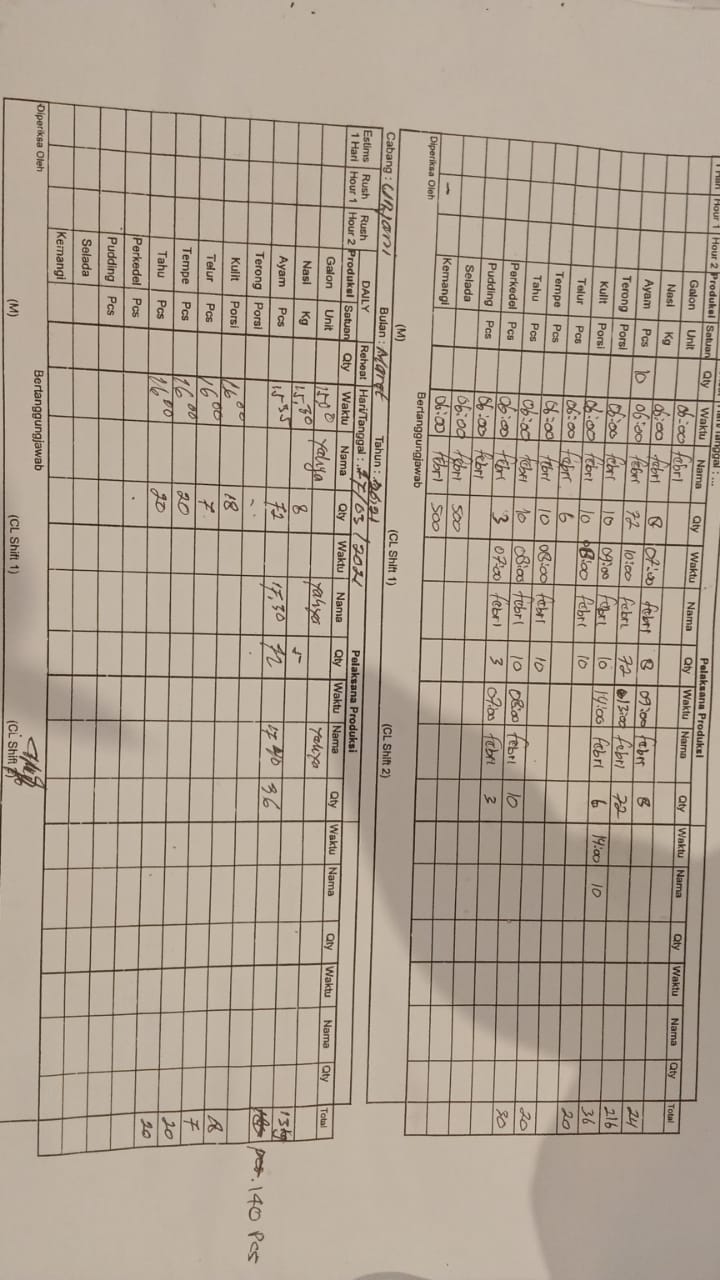 1 Hari Hour 1 Hour 2 Produksi Satuan Qty Waktu Nama Qty Waktu Nama Qty Waktu Nama Qty Waktu Nama Qty Waktu Nama Qty Total
Pelaksana Produksi
Galon Unit 06:00 febri
Nasi Kg 06:00 febri 8 07:00 febri 8 09:00 febri 8 24
Ayam Pcs 10 06:00 febri 72 10:00 febri 72 13:00 febri 72 216
Terong Porsi 06:00 febri 10 09:00 febri 10 14:00 febri 6 14:00 10 36
Kulit Porsi 06:00 febri 10 08:00 febri 10 20
Telur Pcs 06:00 febri 6
Tempe Pcs 06:00 febri 10 08:00 febri 10 20
Tahu Pcs 06:00 febri 10 08:00 febri 10 08:00 febri 10 30
Perkedel Pcs 06:00 febri 3 07:00 febri 3 09:00 febri 3
Pudding Pcs 06:00 febri
Selada 06:00 febri 500
Kemangi 06:00 febri 500
Diperiksa Oleh Bertanggungjawab
(M) (CL Shift 1) (CL Shift 2)
Cabang : Unjani Bulan : Maret Tahun : 2021
Estims Rush Rush DAILY Reheat Hari/Tanggal : 27/03/2021 Pelaksana Produksi
1 Hari Hour 1 Hour 2 Produksi Satuan Qty Waktu Nama Qty Waktu Nama Qty Waktu Nama Qty Waktu Nama Qty Waktu Nama Qty Total
Galon Unit 15.00 yahya yahya yahya
Nasi Kg 15.30 8 5 13 kg
Ayam Pcs 15.35 72 17.30 72 17.40 36 pcs. 140 Pcs
Terong Porsi
Kulit Porsi 16.00 18 18
Telur Pcs 16.00 7 7
Tempe Pcs 16.00 20 20
Tahu Pcs 16.00 20 20
Perkedel Pcs
Pudding Pcs
Selada
Kemangi
Diperiksa Oleh Bertanggungjawab
(M) (CL Shift 1) (CL Shift 2)